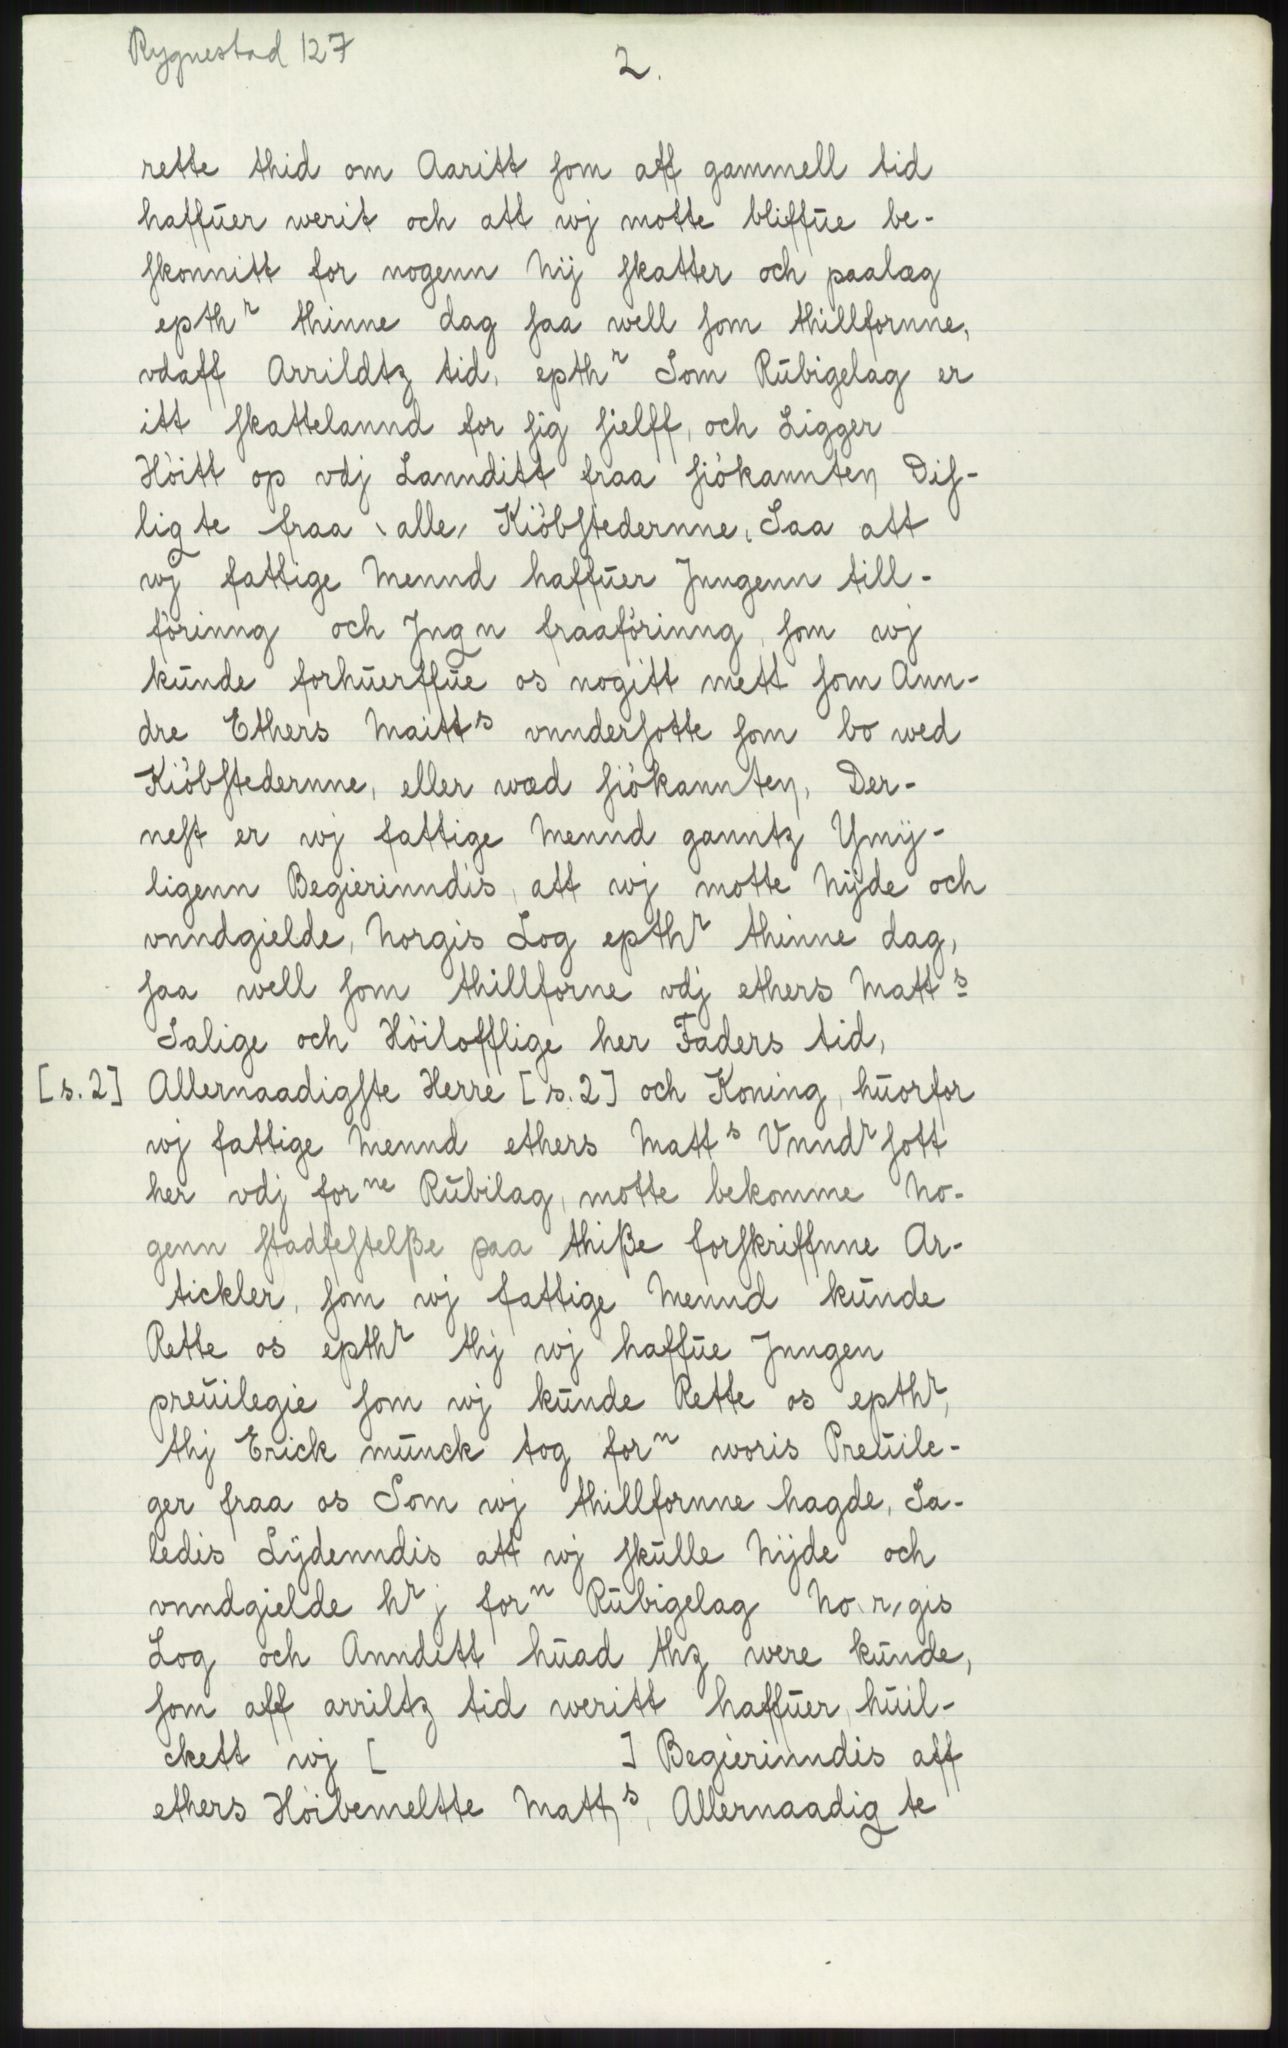 Rygnestad 127
2.
rette thid om Aaritt som aff gammell tid
haffuer werit och att wj motte bliffue be-
skonnitt for nogenn Nij skatter och paalæg
epthr thinne dag saa well som thillfornne,
vdaff Arrildtz tid, epthr Som Rŭbigelag er
itt skattelannd for sig sielff, och Ligger
Höitt op vdj Lannditt fraa siökannten Dis-
ligte fraa \alle/ Kiöbstedernne, Saa att
wj fattige Mennd haffŭer Jnngenn till-
förinng och Jngn fraaförinng, som wj
kŭnde forhŭerffŭe os nogitt mett som Ann-
dre Ethers Maitts vnndersotte som bo wed
Kiöbstedernne, eller wæd siökannten, Der-
nest er wj fattige Mennd ganntz Ymÿ-
ligenn Begierinndis, att wj motte Nÿde och
vnndgielde, Norgis Log epthr thinne dag,
saa well som thillforne vdj ethers Matts
Salige och Höilofflige her Faders tid,
[s.2] Allernaadigste Herre [s.2] och Koning, hŭorfor
wj fattige Mennd ethers Matts Vnndrsott
her vdj forne Rŭbilag, motte bekomme No-
genn stadfestelße paa thiße forskriffnne Ar-
tickler, som wj fattige Mennd kŭnde
Rette os epthr thj wj haffŭe Jnngen
preŭilegie som wj kŭnde Rette os epthr,
thj Erick mŭnck tog forn woris Preŭile-
ger fraa os Som wj thillfornne hagde, Sa-
ledis Lÿdenndis att wj skŭlle Nÿde och
vnndgielde hr j forn Rŭbigelag No\r/gis
Log och Anndett hŭad thz were kŭnde,
som aff arriltz tid weritt haffŭer, hŭil-
ckett wj [ ] Begierinndis aff
ethers Höibemeltte Matts, Allernaadigte